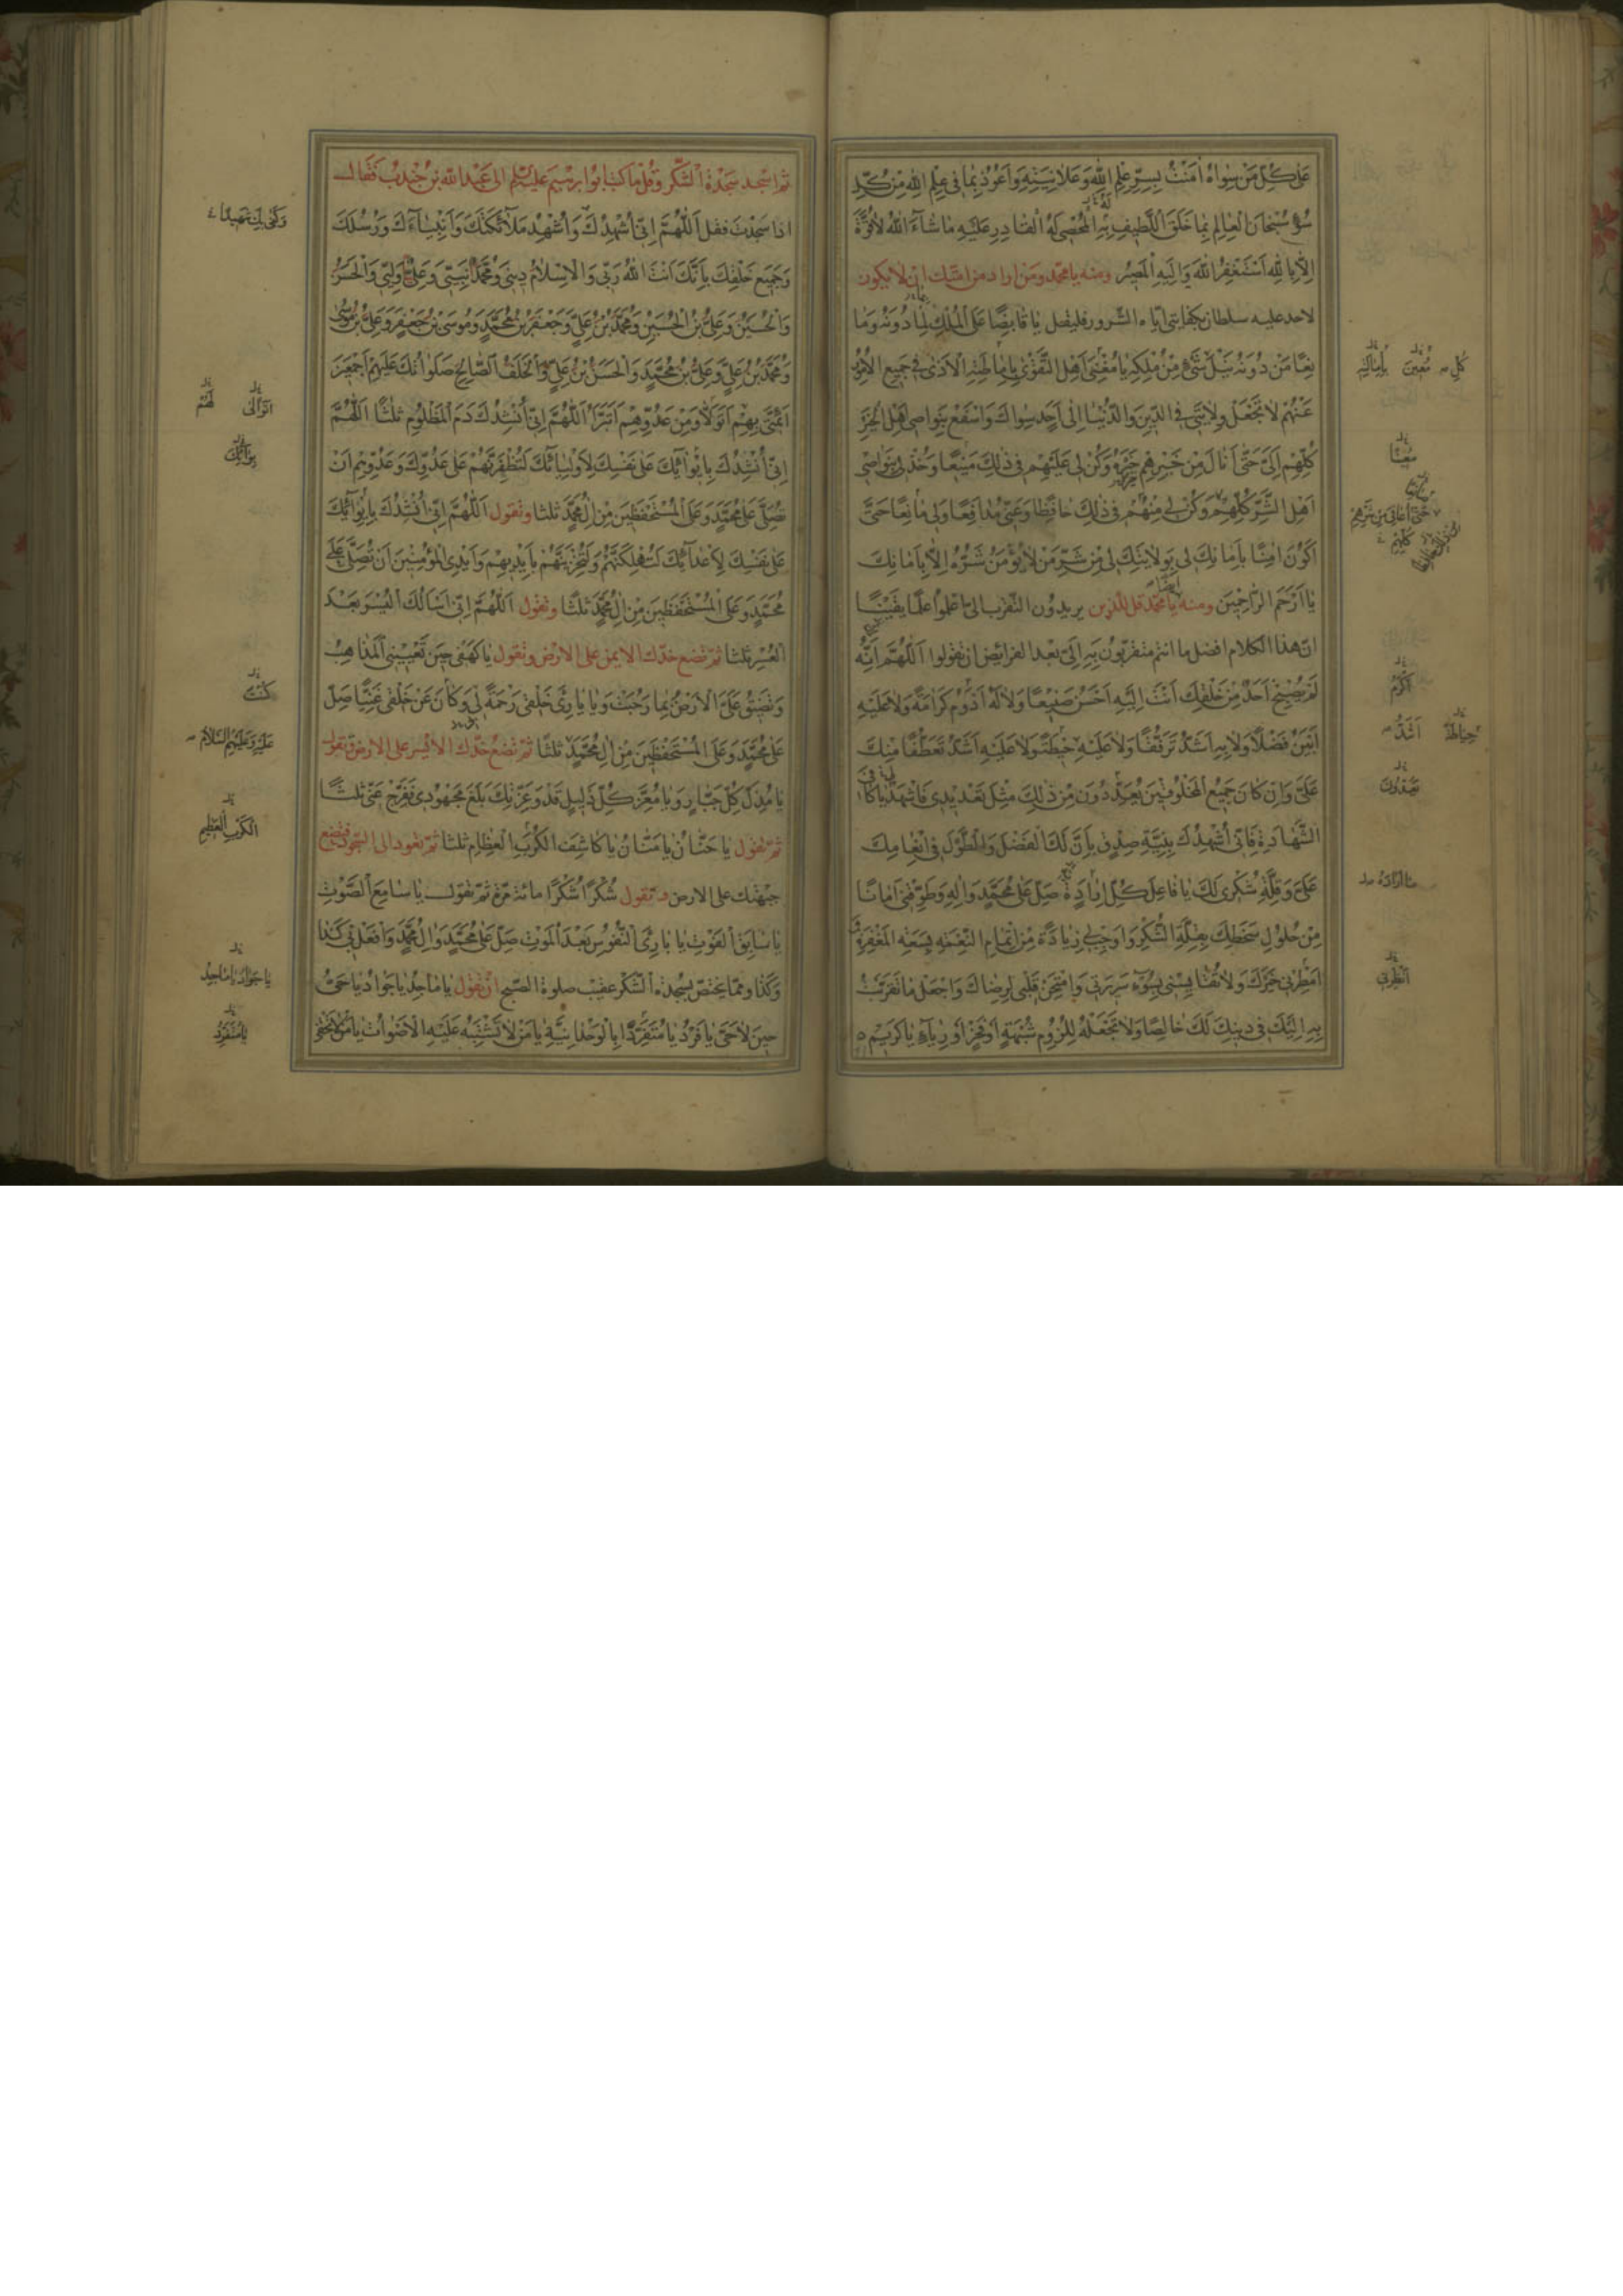 عَلٰى كُلِّ مَنْ سِوَاهُ اٰمَنْتُ بِسِرِّ عِلْمِ اللّٰهِ وَعَلَانِيَتِهِ وَاَعُوذُ بِمَا فِي عِلْمِ اللّٰهِ مِنْ كُلِّ
سُوءٍ سُبْحَانَ الْعَالِمِ بِمَا خَلَقَ اللَّطِيفِ بِهِ الْمُحْصِي لَهُ الْقَادِرِ عَلَيْهِ مَا شَآءَ اللّٰهُ لَا قُوَّةَ
اِلَّا بِاللّٰهِ اَسْتَغْفِرُ اللّٰهَ وَاِلَيْهِ الْمَصِيرُ ومنه يا محمد ومن اراد من امتك ان لا يكون
لاحد عليه سلطان بكفايتى اياه الشرور فليقل يَا قَابِضًا عَلَى الْمُلْكِ لِمَا دُونَهُ وَمَا
نِعًا مَنْ دُونَهُ نَيْلَ شَيْءٍ مِنْ مُلْكِهِ يَا مُغْنِيَ اَهْلِ التَّقْوٰى بِاِمَاطَتِهِ الْاَذٰى فِي جَمِيعِ الْاُمُورِ
عَنْهُمْ لَا تَجْعَلْ وِلَايَتِي فِي الدِّينِ وَالدُّنْيَا اِلٰى اَحَدٍ سِوَاكَ وَاسْفَعْ بِنَوَاصِي اَهْلِ الْخَيْرِ
كُلِّهِمْ اِلَيَّ حَتّٰى اَنَالَ مِنْ خَيْرِهِمْ خَيْرَهُ وَكُنْ لِي عَلَيْهِمْ فِي ذٰلِكَ مَنِيعًا وَخُذْ لِي بِنَوَاصِي
اَهْلِ الشَّرِّ كُلِّهِمْ وَكُنْ لِي مِنْهُمْ فِي ذٰلِكَ حَافِظًا وَعَنِّي مُدَافِعًا وَلِي مَانِعًا حَتّٰى
اَكُونَ اٰمِنًا بِاَمَانِكَ لِي بِوِلَايَتِكَ لِي مِنْ شَرِّ مَنْ لَا يُؤْمَنُ شَرُّهُ اِلَّا بِاَمَانِكَ
يَا اَرْحَمَ الرَّاحِمِينَ ومنه يا محمد قل للذين يريدون التقرب الى اعلموا علما يقينا
ان هذا الكلام افضل ما انتم متقربون به الى بعد الفرائض ان تقولوا اَللّٰهُمَّ اِنَّهُ
لَمْ يُصْبِحْ اَحَدٌ مِنْ خَلْقِكَ اَنْتَ اِلَيْهِ اَحْسَنُ صَنِيعًا وَلَا لَهُ اَدْوَمُ كَرَامَةً وَلَا عَلَيْهِ
اَبْيَنُ فَضْلًا وَلَا بِهِ اَشَدُّ تَرَفُّقًا وَلَا عَلَيْهِ حِيطَةً وَلَا عَلَيْهِ اَشَدُّ تَعَطُّفًا مِنْكَ
عَلَيَّ وَاِنْ كَانَ جَمِيعُ الْمَخْلُوقِينَ يُعَدِّدُونَ مِنْ ذٰلِكَ مِثْلَ تَعْدِيدِي فَاشْهَدْ يَا كَافِيَ
الشَّهَادَةِ فَاِنِّي اُشْهِدُكَ بِنِيَّةِ صِدْقٍ بِاَنَّ لَكَ الْفَضْلَ وَالطَّوْلَ فِي اِنْعَامِكَ
عَلَيَّ وَقِلَّةِ شُكْرِي لَكَ يَا فَاعِلَ كُلِّ اِرَادَةٍ صَلِّ عَلٰى مُحَمَّدٍ وَاٰلِهِ وَطَوِّقْنِي اَمَانًا
مِنْ حُلُولِ سَخَطِكَ بِقِلَّةِ الشُّكْرِ وَاَوْجِبْ لِي زِيَادَةً مِنْ اِتْمَامِ النِّعْمَةِ بِسَعَةِ الْمَغْفِرَةِ
اَمْطِرْنِي خَيْرَكَ وَلَا تُقَايِسْنِي بِسُوءِ سَرِيرَتِي وَامْتَحِنْ قَلْبِي لِرِضَاكَ وَاجْعَلْ مَا تَقَرَّبْتُ
بِهِ اِلَيْكَ فِي دِينِكَ لَكَ خَالِصًا وَلَا تَجْعَلْهُ لِلُزُومِ شُبْهَةٍ اَوْ فَخْرٍ اَوْ رِيَآءٍ يَا كَرِيمُ
كُلِّ
مُعِينًا
اَكْرَمُ
اَشَدُّ
حِيَاطَةً
اَنْظِرْنِي
ثم اسجد سجدة الشكر وقل ما كتب ابو ابرهيم عليه السلم الى عبد الله بن جندب فقال
اذا سجدت فقل اَللّٰهُمَّ اِنِّي اُشْهِدُكَ وَاُشْهِدُ مَلَآئِكَتَكَ وَاَنْبِيَآءَكَ وَرُسُلَكَ
وَجَمِيعَ خَلْقِكَ بِاَنَّكَ اَنْتَ اللّٰهُ رَبِّي وَالْاِسْلَامُ دِينِي وَمُحَمَّدٌ نَبِيِّي وَعَلِيٌّ وَلِيِّي وَالْحَسَنُ
وَالْحُسَيْنُ وَعَلِيُّ بْنُ الْحُسَيْنِ وَمُحَمَّدُ بْنُ عَلِيٍّ وَجَعْفَرُ بْنُ مُحَمَّدٍ وَمُوسَى بْنُ جَعْفَرٍ وَعَلِيُّ بْنُ مُوسٰى
وَمُحَمَّدُ بْنُ عَلِيٍّ وَعَلِيُّ بْنُ مُحَمَّدٍ وَالْحَسَنُ بْنُ عَلِيٍّ وَالْخَلَفُ الصَّالِحُ صَلَوَاتُكَ عَلَيْهِمْ اَجْمَعِينَ
اَئِمَّتِي بِهِمْ اَتَوَلَّا وَمِنْ عَدُوِّهِمْ اَتَبَرَّاُ اَللّٰهُمَّ اِنِّي اُنْشِدُكَ دَمَ الْمَظْلُومِ ثلثا اَللّٰهُمَّ
اِنِّي اُنْشِدُكَ بِاِيوَآئِكَ عَلٰى نَفْسِكَ لِاَوْلِيَآئِكَ لَتُظْفِرَنَّهُمْ عَلٰى عَدُوِّكَ وَعَدُوِّهِمْ اَنْ
تُصَلِّيَ عَلٰى مُحَمَّدٍ وَعَلَى الْمُسْتَحْفَظِينَ مِنْ اٰلِ مُحَمَّدٍ ثلثا وتقول اَللّٰهُمَّ اِنِّي اُنْشِدُكَ بِاِيوَآئِكَ
عَلٰى نَفْسِكَ لِاَعْدَآئِكَ لَتُهْلِكَنَّهُمْ وَلَتُخْزِيَنَّهُمْ بِاَيْدِيهِمْ وَاَيْدِي الْمُؤْمِنِينَ اَنْ تُصَلِّيَ عَلٰى
مُحَمَّدٍ وَعَلَى الْمُسْتَحْفَظِينَ مِنْ اٰلِ مُحَمَّدٍ ثلثا وتقول اَللّٰهُمَّ اِنِّي اَسْاَلُكَ الْيُسْرَ بَعْدَ
الْعُسْرِ ثلثا ثم تضع خدك الايمن على الارض وتقول يَا كَهْفِي حِينَ تُعْيِينِي الْمَذَاهِبُ
وَتَضِيقُ عَلَيَّ الْاَرْضُ بِمَا رَحُبَتْ وَيَا بَارِئَ خَلْقِي رَحْمَةً لِي وَكَانَ عَنْ خَلْقِي غَنِيًّا صَلِّ
عَلٰى مُحَمَّدٍ وَعَلَى الْمُسْتَحْفَظِينَ مِنْ اٰلِ مُحَمَّدٍ ثلثا ثم تضع خدك الايسر على الارض وتقول
يَا مُذِلَّ كُلِّ جَبَّارٍ وَيَا مُعِزَّ كُلِّ ذَلِيلٍ قَدْ وَعِزَّتِكَ بَلَغَ مَجْهُودِي فَفَرِّجْ عَنِّي ثلثا
ثم تقول يَا حَنَّانُ يَا مَنَّانُ يَا كَاشِفَ الْكُرَبِ الْعِظَامِ ثلثا ثم تعود الى السجود فتضع
جبهتك على الارض وتقول شُكْرًا شُكْرًا مائة مرة ثم تقول يَا سَامِعَ الصَّوْتِ
يَا سَابِقَ الْفَوْتِ يَا بَارِئَ النُّفُوسِ بَعْدَ الْمَوْتِ صَلِّ عَلٰى مُحَمَّدٍ وَاٰلِ مُحَمَّدٍ وَافْعَلْ بِي كَذَا
وَكَذَا ومما يختص بسجدة الشكر عقيب صلوة الصبح ان تقول يَا مَاجِدُ يَا جَوَادُ يَا حَيُّ
حِينَ لَا حَيَّ يَا فَرْدُ يَا مُتَفَرِّدًا بِالْوَحْدَانِيَّةِ يَا مَنْ لَا تَشْتَبِهُ عَلَيْهِ الْاَصْوَاتُ يَا مَنْ لَا تَخْفٰى
وَكَفٰى بِكَ شَهِيدًا
اَتَوَالٰى
بِوَأْيِكَ
كُنْتَ
عَلَيْهِ وَعَلَيْهِمُ السَّلَامُ
الْكَرْبِ الْعَظِيمِ
يَا جَوَادُ يَا مَاجِدُ
يَا مُنْفَرِدُ